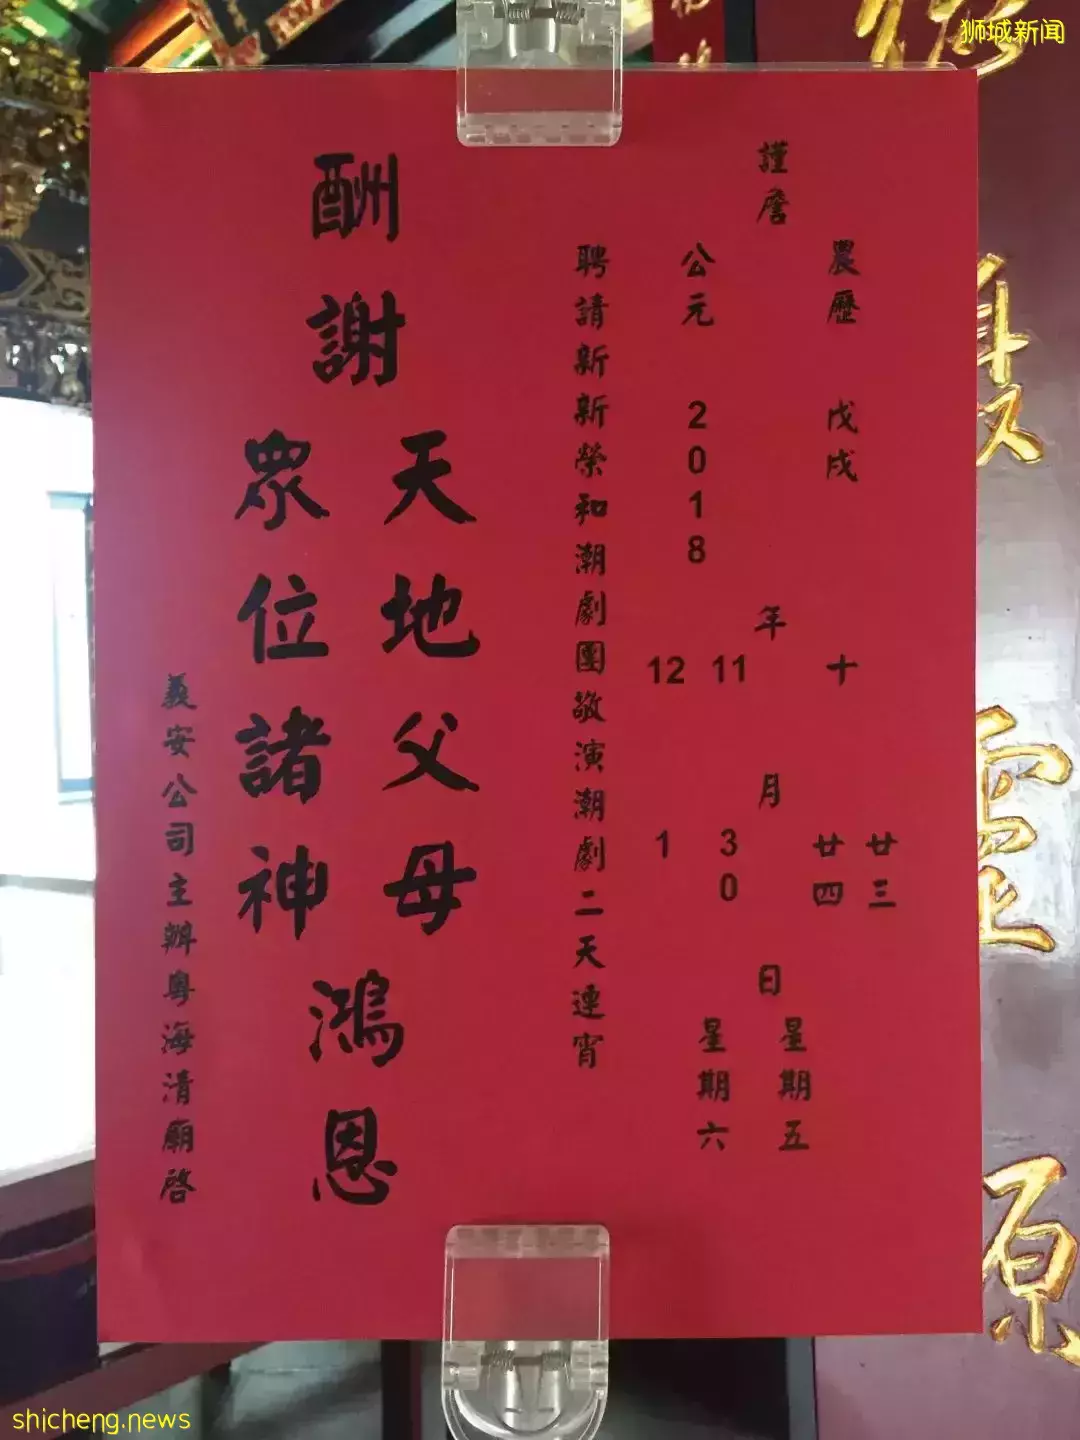 狮城新闻
謹詹
農歷 戊戌 十 廿三
廿四
年 月 日
公元 2018 11 30 星期五
12 1 星期六
聘請新新榮和潮劇團敬演潮劇二天連宵
酬謝
天地父母
眾位諸神
鴻恩
義安公司主辦粵海清廟啓
靈
原
shicheng.news